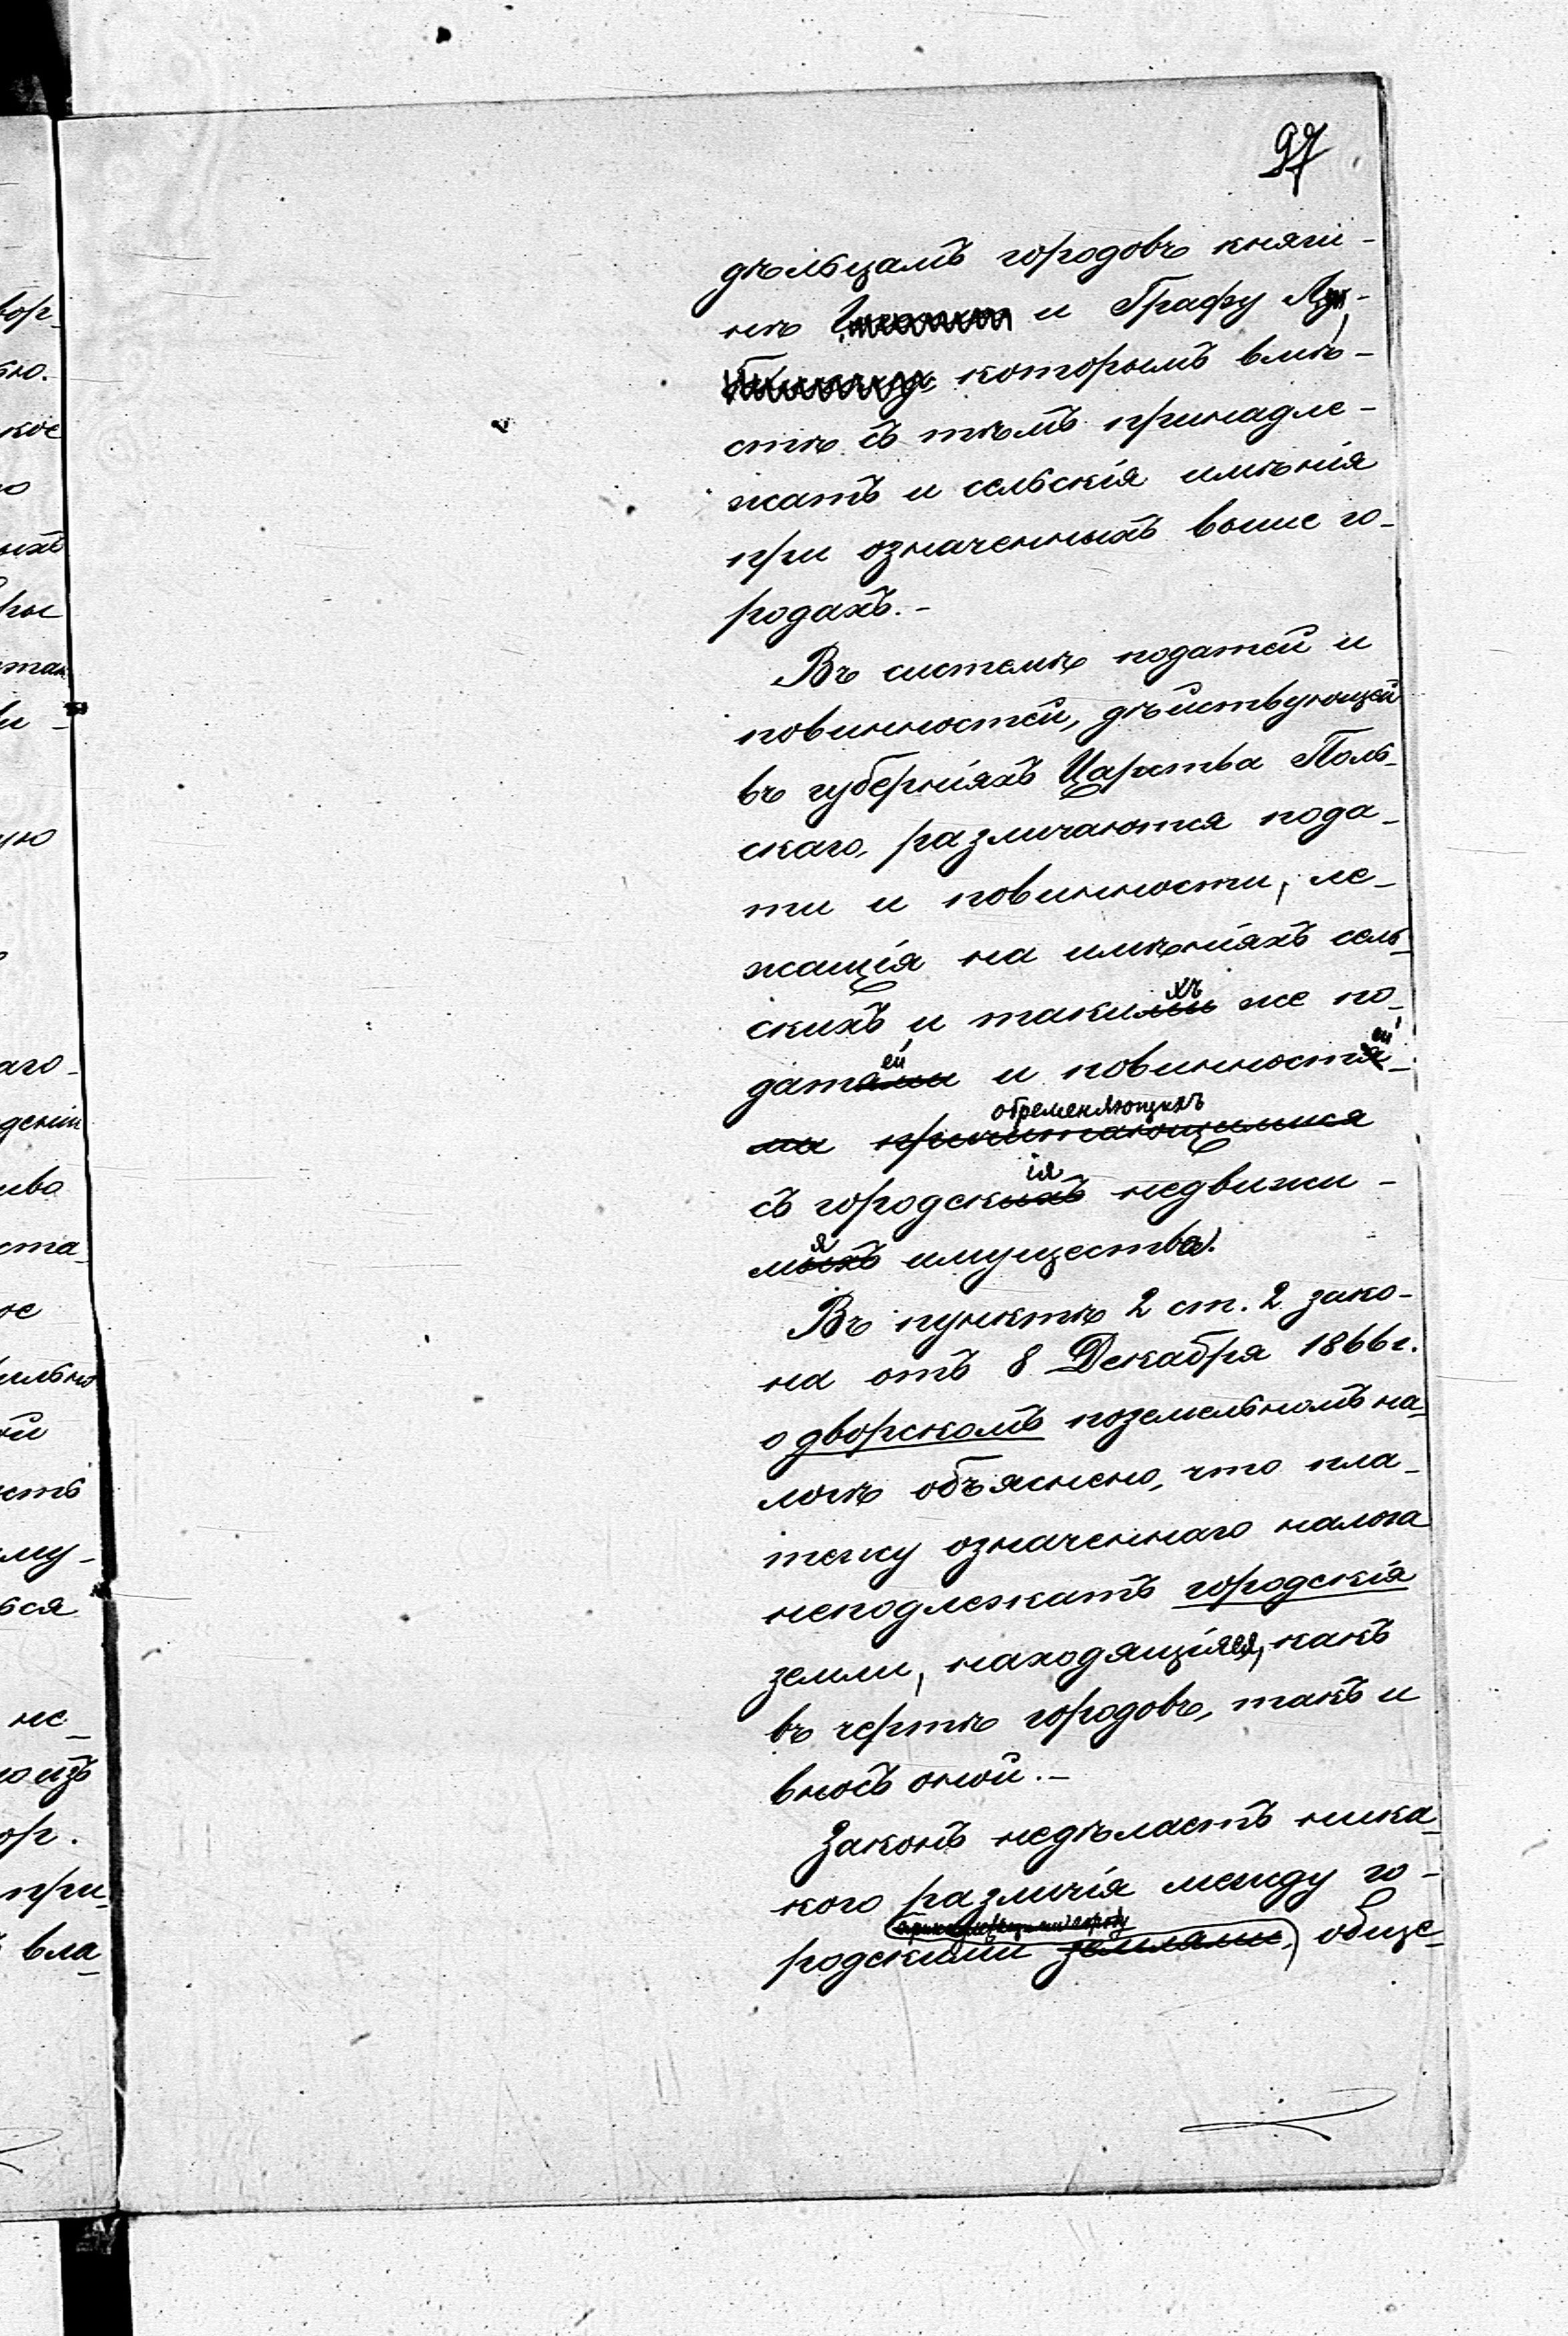 97
дѣльцамъ городовъ княги-
нѣ и Графу
которымъ вмѣ-
стѣ съ тѣмъ принадле-
жатъ и сельскія имѣнія
при означенныхъ выше го-
родахъ.-
Въ системѣ податей и
повинностей, дѣйствующей
въ губерніяхъ Царства Поль-
скаго, различаются пода-
ти и повинности, ле-
жащія на имѣніяхъ сель-
хъ
скихъ и такими же по-
ей ей
датями и повинностя-
обременяющихъ
ми причитающимися
ія
съ городскихъ недвижи-
я
мыхъ имущества.
Въ пунктѣ 2 ст. 2 зако-
на отъ 8 Декабря 1866 г.
о дворскомъ поземельномъ на-
логѣ объяснено, что пла-
тежу означеннаго налога
неподлежатъ городскія
земли, находящіяся, какъ
въ чертѣ городовъ, такъ и
внѣ оной.-
Законъ недѣлаетъ ника-
кого различія между го-
родскими землями, обще-
вор-
ью.
ское
ыхъ
ры
таль
ви-
ую
аго-
деніи
иво
ста-
ое
ильно
ой
сть
ему-
ься
не-
ор.
при-
вла-